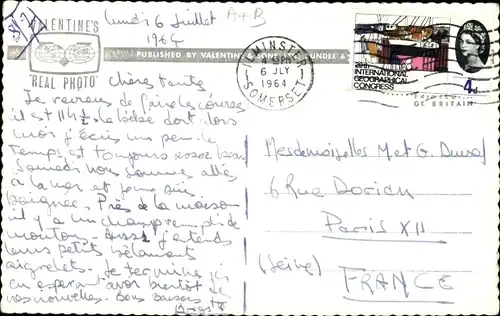 VALENTINE'S
"REAL PHOTO"
lundi 6 Juillet
1964
A+B
PUBLISHED BY VALENTINE & SONS
ILMINSTER
6 JLY
1964
SOMERSET
20TH INTERNATIONAL
GEOGRAPHICAL
CONGRESS
4d
GT. BRITAIN
Chères tantes
Je reviens de faire les courses
il est 11h½. le bébé dort alors
moi j'écris un peu. le
temps est toujours assez beau.
Samedi nous sommes allés
à la mer et je me suis
baignée. Près de la maison
il y a un champ rempli de
moutons. Aussi j'entends
leurs petits bêlements
aigrelets. Je termine ici
en espérant avoir bientôt de
vos nouvelles. Bons baisers
Mesdemoiselles M et G. Duval
6 Rue Dorian
Paris XII
(Seine)
FRANCE